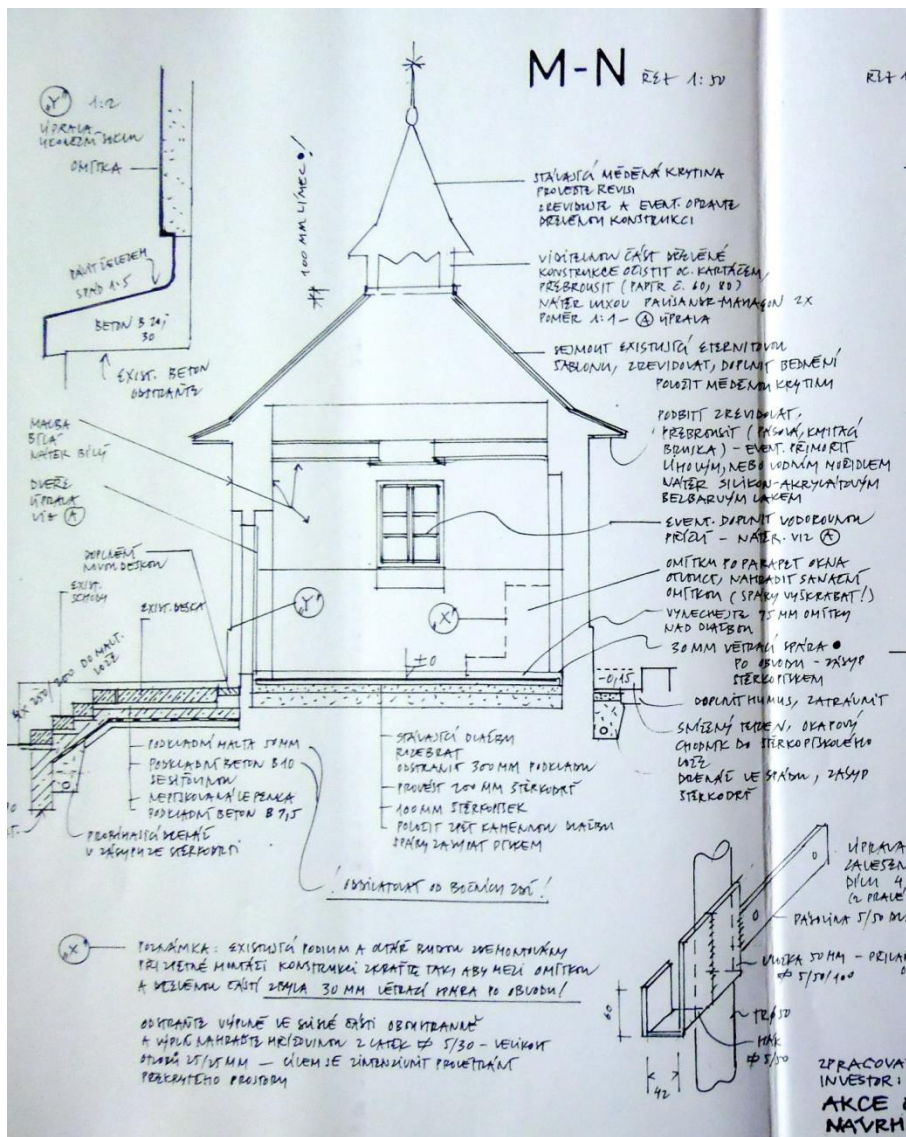 M-N ŘEZ 1:50
"Y" 1:2
ÚPRAVA
UKONČENÍ SOKLU
OMÍTKA
SPÁD 1:5
BETON B 20;
30
EXIST. BETON
ODSTRAŇTE
100 MM LÍMEC !
STÁVAJÍCÍ MĚDĚNÁ KRYTINA
PROVEĎTE REVISI
ZREVIDUJTE A EVENT. OPRAVTE
DŘEVĚNOU KONSTRUKCI
VIDITELNOU ČÁST DŘEVĚNÉ
KONSTRUKCE OČISTIT OC. KARTÁČEM,
PŘEBROUSIT (PAPÍR Č. 60, 80)
NÁTĚR LUXOL PALISANDR-MAHAGON 2X
POMĚR 1:1 – A ÚPRAVA
SEJMOUT EXISTUJÍCÍ ETERNITOVOU
ŠABLONU, ZREVIDOVAT, DOPLNIT BEDNĚNÍ
POLOŽIT MĚDĚNOU KRYTINU
PODBITÍ ZREVIDOVAT,
PŘEBROUSIT (PÁSOVÁ, KMITACÍ
BRUSKA) – EVENT. PŘIMOŘIT
LIHOVÝM, NEBO VODNÍM MOŘIDLEM
NÁTĚR SILIKON-AKRYLÁTOVÝM
BEZBARVÝM LAKEM
MALBA
BÍLÁ
NÁTĚR BÍLÝ
DVEŘE
ÚPRAVA
VIZ A
EVENT. DOPLNIT VODOROVNOU
PŘÍČLÍ – NÁTĚR VIZ A
OMÍTKU PO PARAPET OKNA
OTLOUCT, NAHRADIT SANAČNÍ
OMÍTKOU (SPÁRY VYŠKRÁBAT!)
VYNECHEJTE 75 MM OMÍTKY
NAD DLAŽBOU
30 MM VĚTRACÍ SPÁRA
PO OBVODU – ZÁSYP
ŠTĚRKOPÍSKEM
DOPLNĚNÍ
NOVOU DESKOU
EXIST.
SCHODY
EXIST. DESKA
"Y"
"X"
±0
-0,15
DOPLNIT HUMUS, ZATRÁVNIT
SNÍŽENÝ TERÉN, OKAPOVÝ
CHODNÍK DO ŠTĚRKOPÍSKOVÉHO
LOŽE
DRENÁŽ VE SPÁDU, ZÁSYP
ŠTĚRKODRŤ
DO MALT.
LOŽE
PODKLADNÍ MALTA 50MM
PODKLADNÍ BETON B10
SE SÍŤOVINOU
NEPÍSKOVANÁ LEPENKA
PODKLADNÍ BETON B 7,5
PROBÍHAJÍCÍ DRENÁŽ
V ZÁSYPU ZE ŠTĚRKODRTI
STÁVAJÍCÍ DLAŽBU
ROZEBRAT
ODSTRANIT 300 MM PODKLADU
PROVÉST 200 MM ŠTĚRKODRŤ
100 MM ŠTĚRKOPÍSEK
POLOŽIT ZPĚT KAMENNOU DLAŽBU
SPÁRY ZASYPAT PÍSKEM
! ODDILATOVAT OD BOČNÍCH ZDÍ !
"X"
POZNÁMKA: EXISTUJÍCÍ PODIUM A OLTÁŘ BUDOU ZDEMONTOVÁNY
PŘI ZPĚTNÉ MONTÁŽI KONSTRUKCI ZKRAŤTE TAK, ABY MEZI OMÍTKOU
A DŘEVĚNOU ČÁSTÍ ZBYLA 30 MM VĚTRACÍ SPÁRA PO OBVODU!
ODSTRAŇTE VÝPLNĚ VE SVISLÉ ČÁSTI OBOUSTRANNĚ
A VÝPLŇ NAHRAĎTE MŘÍŽOVINOU Z LATĚK 5/30 – VELIKOST
OTVORŮ 25/25 MM – CÍLEM JE ZINTENZIVNIT PROVĚTRÁNÍ
PŘEKRYTÉHO PROSTORU
ÚPRAVA
PÁSOVINA 5/50
5/50/100
TR 50
HÁK
5/50
60
42
INVESTOR:
AKCE
NÁVRH